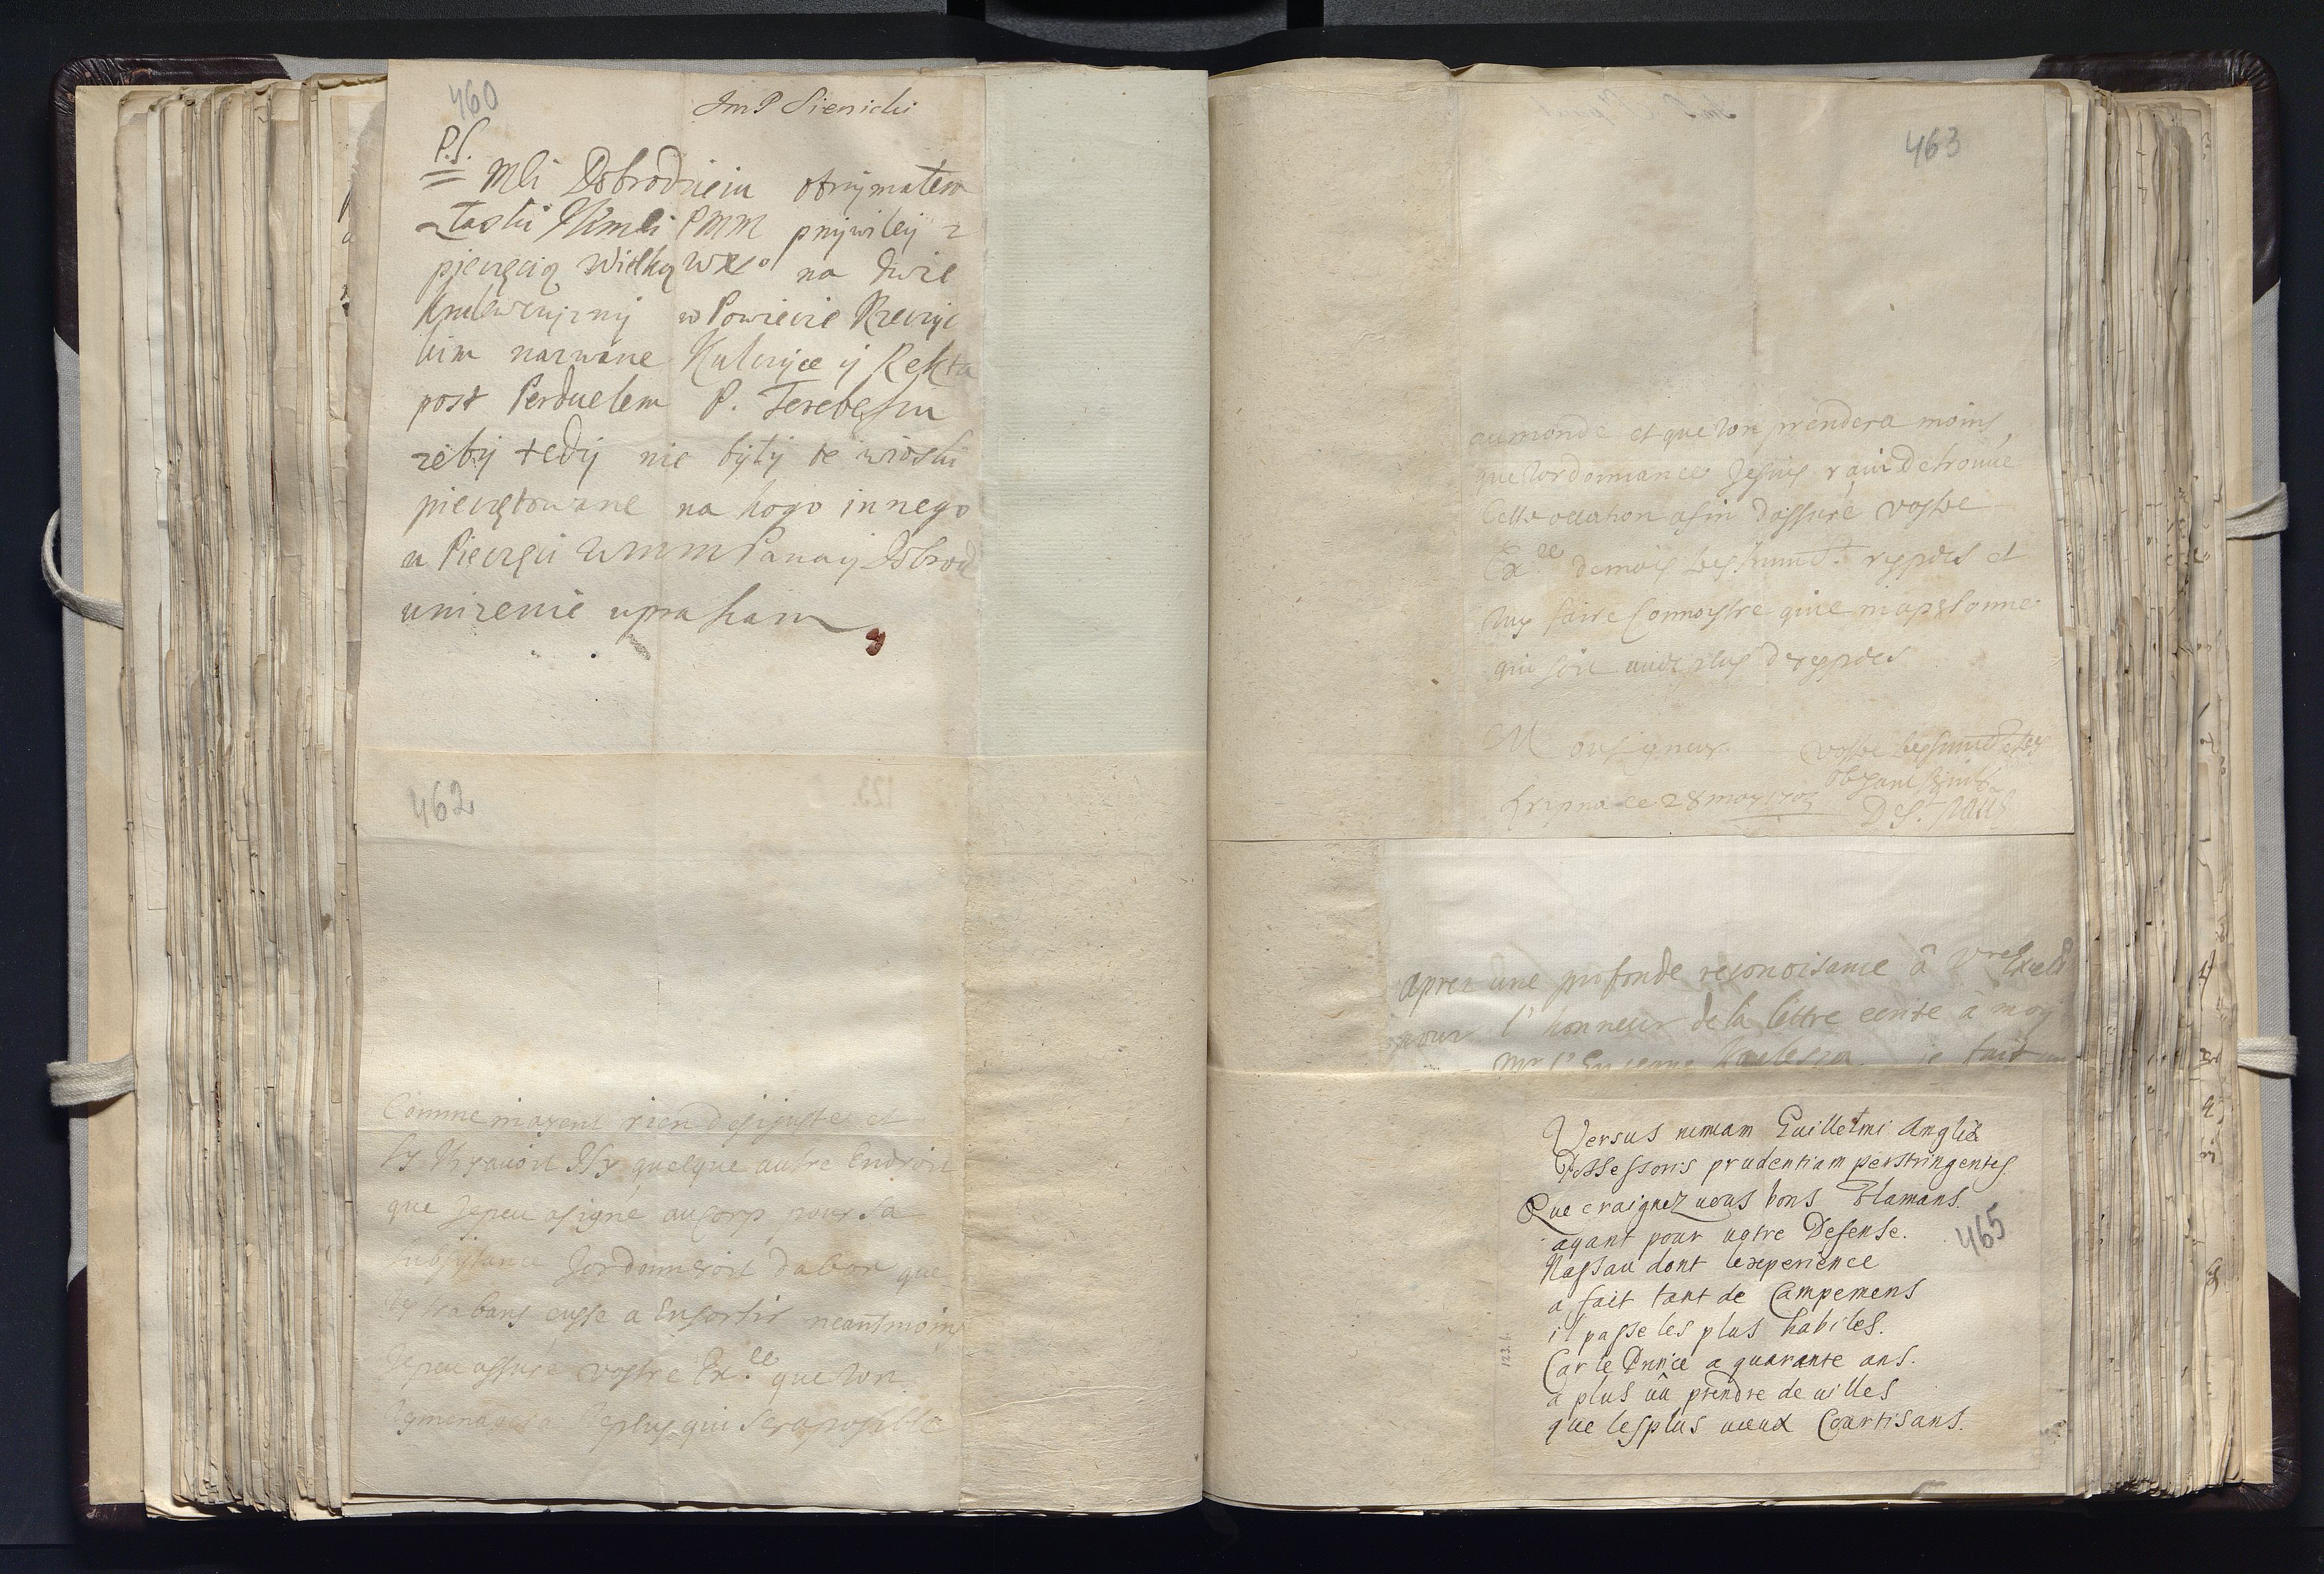 460
JmP Sienicki
P.S.
Mci Dobrodzieiu otrzymałem
z łaski JKmći PMM przywiley z
pieczęcią Wielką WXo na dwie
w Powiecie Rzeczyc
kim nazwane Kulczyce ij Rekta
post Perduelem P. Terebeszu
żeby tedij nie byłij te wioski
pieczętowane na kogo innego
u Pieczęci WMM Panaij Dobrod
uniżenie upraszam
462
Comme inayent rien desijuste et
sy quelque autre Endroit
que Jepeu asigné aucorp pour sa
subsistance Jordonnerois dabor que
trabans eusse a Ensortir neantmoins
Jepeu assuré vostre Ex.ce que lon
leplus qui sera posible
463
aumonde et que lon prendera moins
que lordonnance Jesuis ravi detrouve
Cette occation afin dassuré vostre
Ex.ce demais tres humb. respects et
luy faire Connoistre quil niapersonne
qui soit avec plus derespects
Monsigneur
vostre treshumb et tres
obeyant servit
ce 28 may 1703
D St. Paul
Aprez une profonde reconoisance â Vre Excell
pour l'honneur de la lettre ecrite â moy
je fait
Versus nimiam Guillelmi Angliæ
Possessoris prudentiam perstringentes.
Que craignez vous bons Flamans.
ayant pour votre Defense.
Nassau dont lexperience
a fait tant de Campemens
il passe les plus habiles.
Car le Prince a quarante ans.
a plus vû prendre de villes
que les plus vieux Courtisans.
465
123.b.